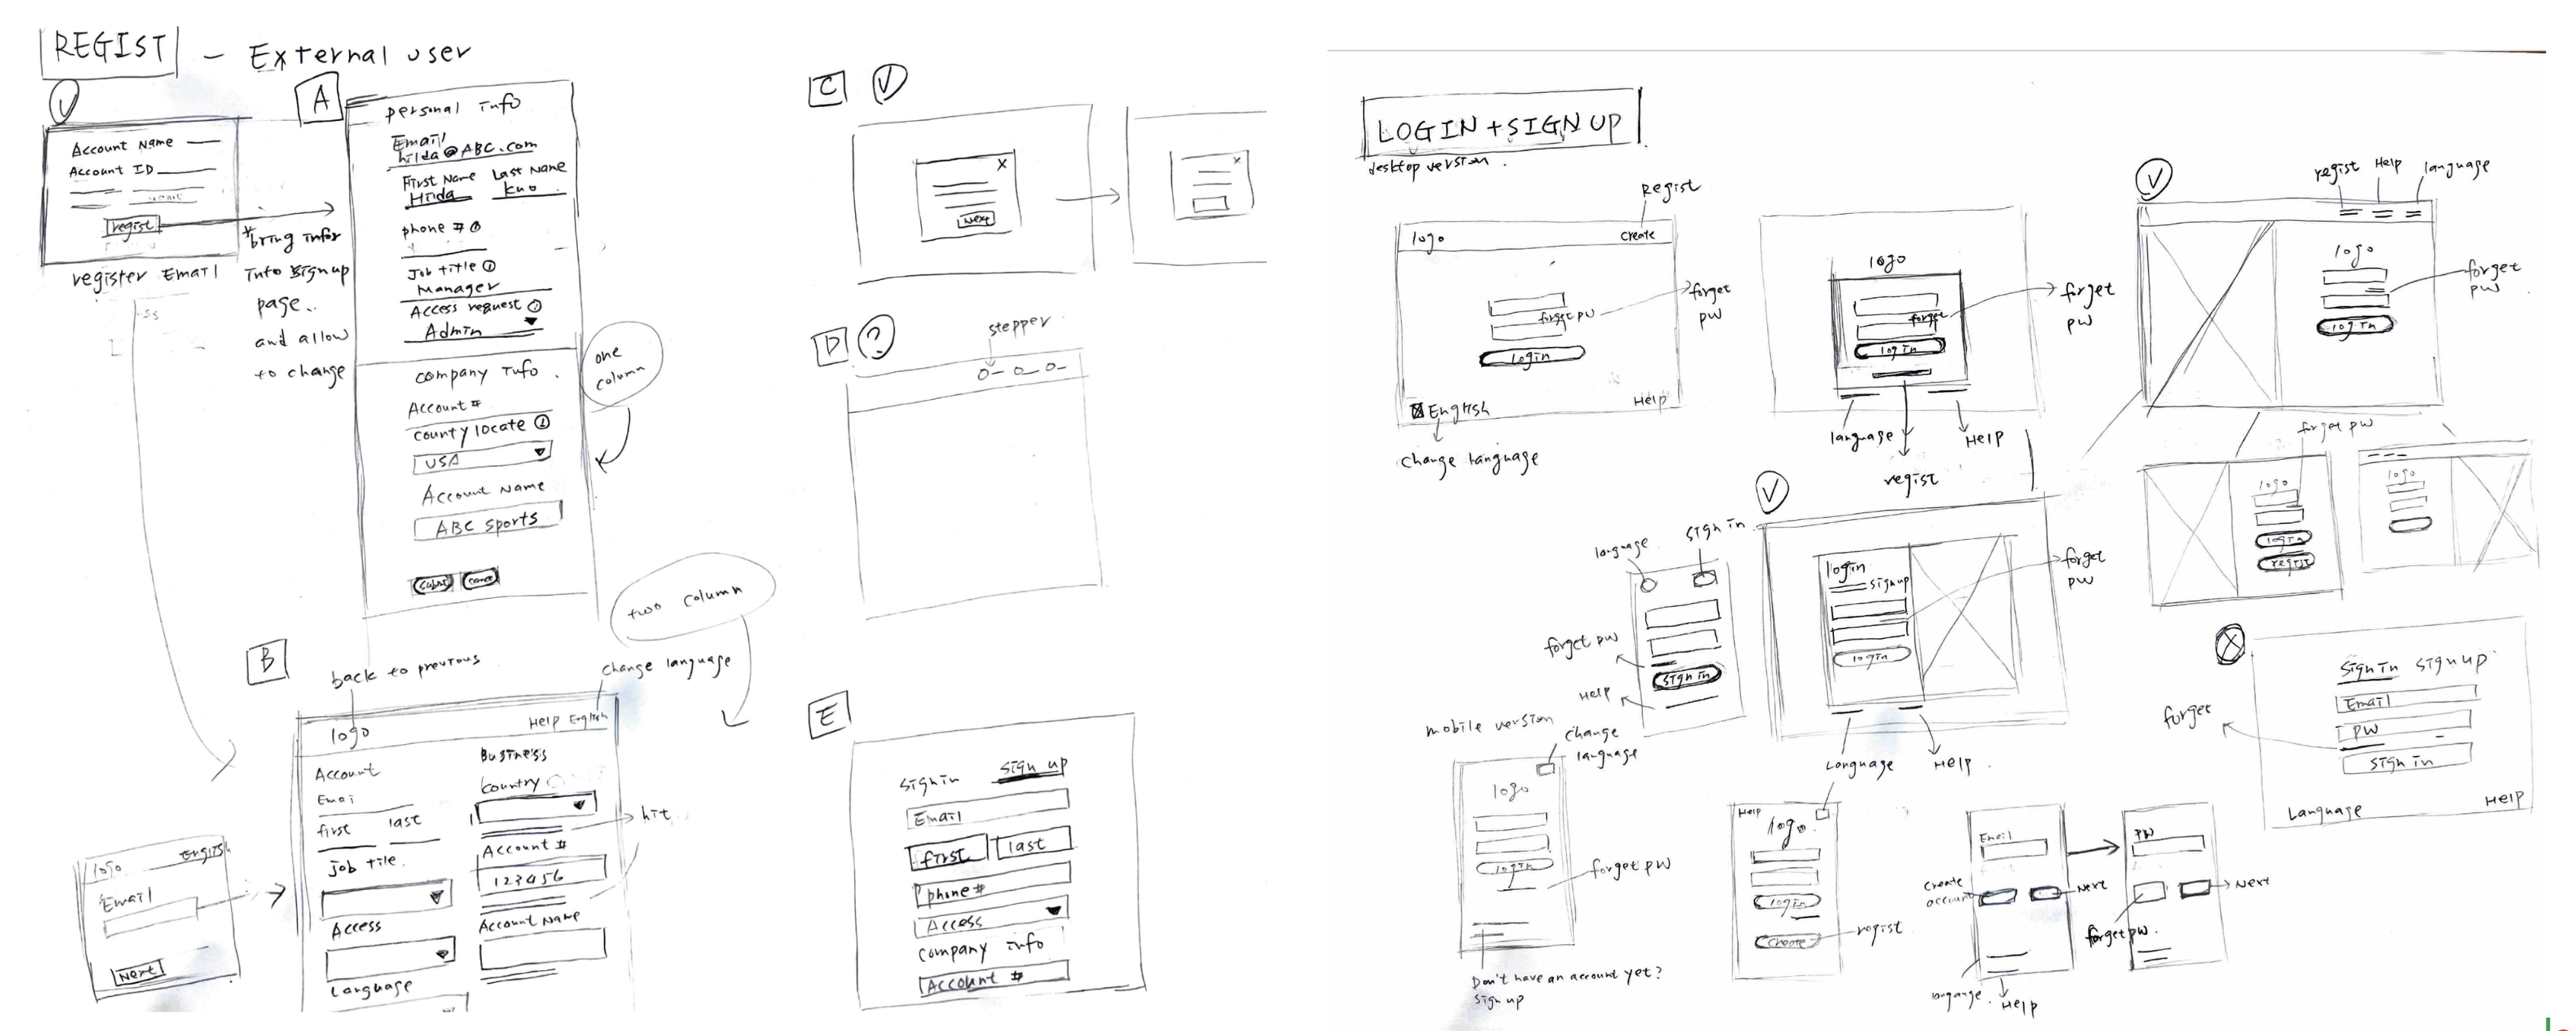 REGIST - External user
Account Name
Account ID
regist
register Email
*bring infor
into signup
page..
and allow
to change
A
personal info
Email
hilda@ABC.com
First Name Last Name
Hilda kuo
phone #
Job title
Manager
Access request
Admin
company info.
Account #
county locate
USA
Account Name
ABC sports
submit cancel
one
column
two column
B
back to previous
change language
logo Help English
Account
Emai
first last
job tile.
Access
Language
Business
country
hit
Account #
123456
Account Name
logo English
Email
Next
C
X
Next
x
D ?
stepper
E
sign in sign up
Email
first last
phone #
Access
company info
Account #
LOGIN + SIGN UP
desktop version.
Regist
logo create
forget pw
forget
pw
login
English Help
change language
logo
forget
login
forget
pw
language Help
regist
V
regist Help language
logo
login
forget
pw
forget pw
logo
login
regist
logo
V
login
signup
login
forget
pw
Language Help.
language sign in
forget pw
sign in
Help
mobile version
change
language
logo
login
forget pw
Don't have an account yet?
sign up
Help
logo
login
create
regist
Email
create
account
Next
Help
PW
Next
forget pw.
sign in sign up
Email
PW
sign in
forget
Language Help